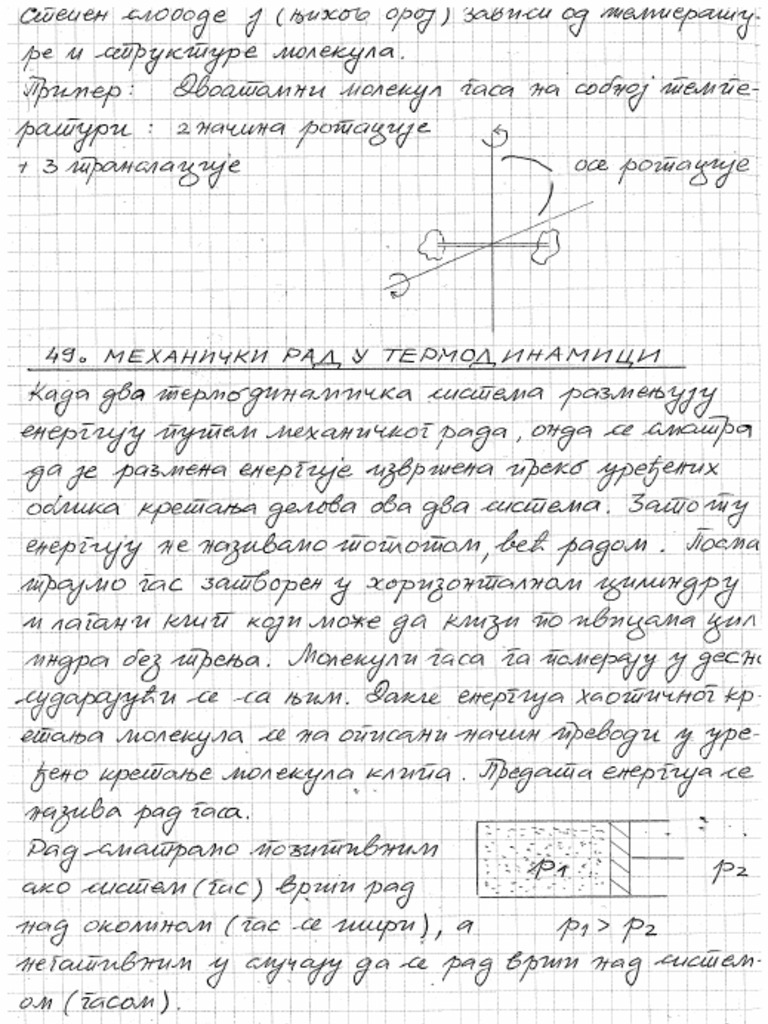 Степен слободе j (њихов број) зависи од температу-
ре и структуре молекула.
Пример: Двоатомни молекул гаса на собној темпе-
ратури: 2 начина ротације
+ 3 транслације
осе ротације
49. МЕХАНИЧКИ РАД У ТЕРМОДИНАМИЦИ
Када два термодинамичка система размењују
енергију путем механичког рада, онда се сматра
да је размена енергије извршена преко уређених
облика кретања делова ова два система. Зато ту
енергију не називамо топлотом, већ радом. Посма
трајмо гас затворен у хоризонталном цилиндру
и лагани клип који може да клизи по ивицама цил
индра без трења. Молекули гаса га померају у десно
сударајући се са њим. Дакле енергија хаотичног кр-
етања молекула се на описани начин преводи у уре-
ђено кретање молекула клипа. Предата енергија се
назива рад гаса.
Рад сматрамо позитивним
ако систем (гас) врши рад
над околином (гас се шири), а
негативним у случају да се рад врши над систем-
ом (гасом).
p1
p2
p1 > p2